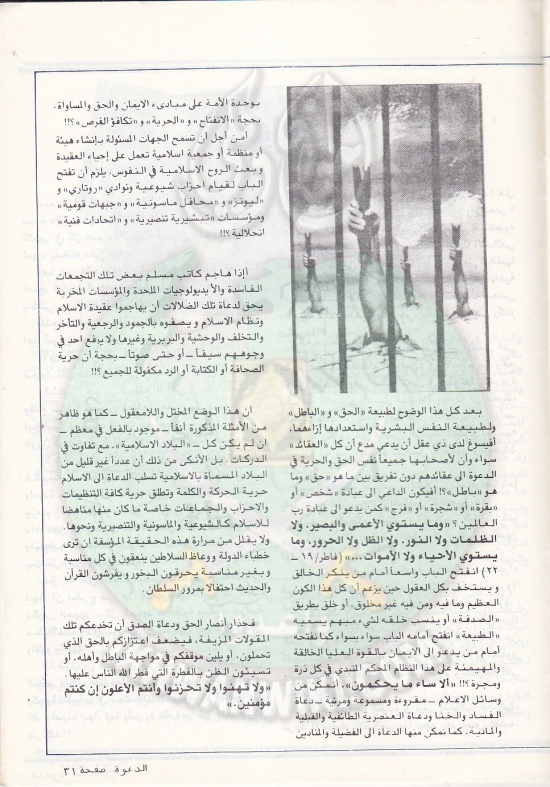 بعد كل هذا الوضوح لطبيعة «الحق» و «الباطل»
ولطبيعة النفس البشرية واستعدادها إزاءهما،
أفيسوغ لدى ذي عقل أن يدعي مدع أن كل «العقائد»
سواء وأن لأصحابها جميعاً نفس الحق والحرية في
الدعوة الى عقائدهم دون تفريق بين ما هو «حق» وما
هو «باطل»؟! أفيكون الداعي الى عبادة «شخص» أو
«بقرة» أو «شجرة» أو «فرج» كمن يدعو الى عبادة رب
العالمين؟ «وما يستوي الأعمى والبصير. ولا
الظلمات ولا النور. ولا الظل ولا الحرور. وما
يستوي الأحياء ولا الأموات...» (فاطر/١٩ ــ
٢٢) انفتح الباب واسعاً أمام من ينكر الخالق
ويستخف بكل العقول حين يزعم أن كل هذا الكون
العظيم وما فيه ومن فيه غير مخلوق. أو خلق بطريق
«الصدفة» أو ينسب خلقه لشيء مبهم يسميه
«الطبيعة» انفتح أمامه الباب سواء بسواء كما نفتحه
أمام من يدعو الى الايمان بالقوة العليا الخالقة
والمهيمنة على هذا النظام المحكم المتبدي في كل ذرة
ومجرة؟!! «ألا ساء ما يحكمون». أنمكن من
وسائل الاعلام ــ مقروءة ومسموعة ومرئية ــ دعاة
الفساد والخنا ودعاة العنصرية الطائفية والقبلية
والمادية. كما نمكن منها الدعاة الى الفضيلة والمنادين
بوحدة الأمة على مبادىء الايمان والحق والمساواة.
بحجة «الانفتاح» و «الحرية» و «تكافؤ الفرص»؟!!
أمن أجل أن تسمح الجهات المسئولة بإنشاء هيئة
أو منظمة أو جمعية اسلامية تعمل على إحياء العقيدة
وبعث الروح الاسلامية في النفوس. يلزم أن تفتح
الباب لقيام احزاب شيوعية ونوادي «روتاري» و
«ليونز» و «محافل ماسونية» و «جبهات قومية»
ومؤسسات «تبشيرية تنصيرية» و «اتحادات فنية»
انحلالية؟!!
أإذا هاجم كاتب مسلم بعض تلك التجمعات
الفاسدة والأيديولوجيات الملحدة والمؤسسات المخربة
يحق لدعاة تلك الضلالات أن يهاجموا عقيدة الاسلام
ونظام الاسلام ويصفوه بالجمود والرجعية والتأخر
والتخلف والوحشية والبربرية وغيرها ولا يرفع أحد في
وجوههم سيفاً ــ أو حتى صوتاً ــ بحجة أن حرية
الصحافة أو الكتابة أو الرد مكفولة للجميع؟!!
ان هذا الوضع المختل واللامعقول ــ كما هو ظاهر
من الأمثلة المذكورة آنفاً ــ موجود بالفعل في معظم ــ
إن لم يكن كل ــ «البلاد الاسلامية». مع تفاوت في
الدركات. بل الأنكى من ذلك أن عدداً غير قليل من
البلاد المسماة بالاسلامية تسلب الدعاة الى الاسلام
حرية الحركة والكلمة وتطلق حرية كافة التنظيمات
والاحزاب والجماعات خاصة ما كان منها مناهضا
للاسلام كالشيوعية والماسونية والتنصيرية ونحوها.
ولا يقلل من مرارة هذه الحقيقة المؤسفة ان ترى
خطباء الدولة ووعاظ السلاطين ينعقون في كل مناسبة
وبغير مناسبة يحرقون البخور ويفرشون القرآن
والحديث احتفالا بمرور السلطان.
فحذار أنصار الحق ودعاة الصدق أن تخدعكم تلك
المقولات المزيفة. فيضعف اعتزازكم بالحق الذي
تحملون. أو يلين موقفكم في مواجهة الباطل وأهله. أو
تسيئون الظن بالفطرة التي فطر الله الناس عليها.
«ولا تهنوا ولا تحزنوا وأنتم الأعلون إن كنتم
مؤمنين.»
الدعوة صفحة ٣١